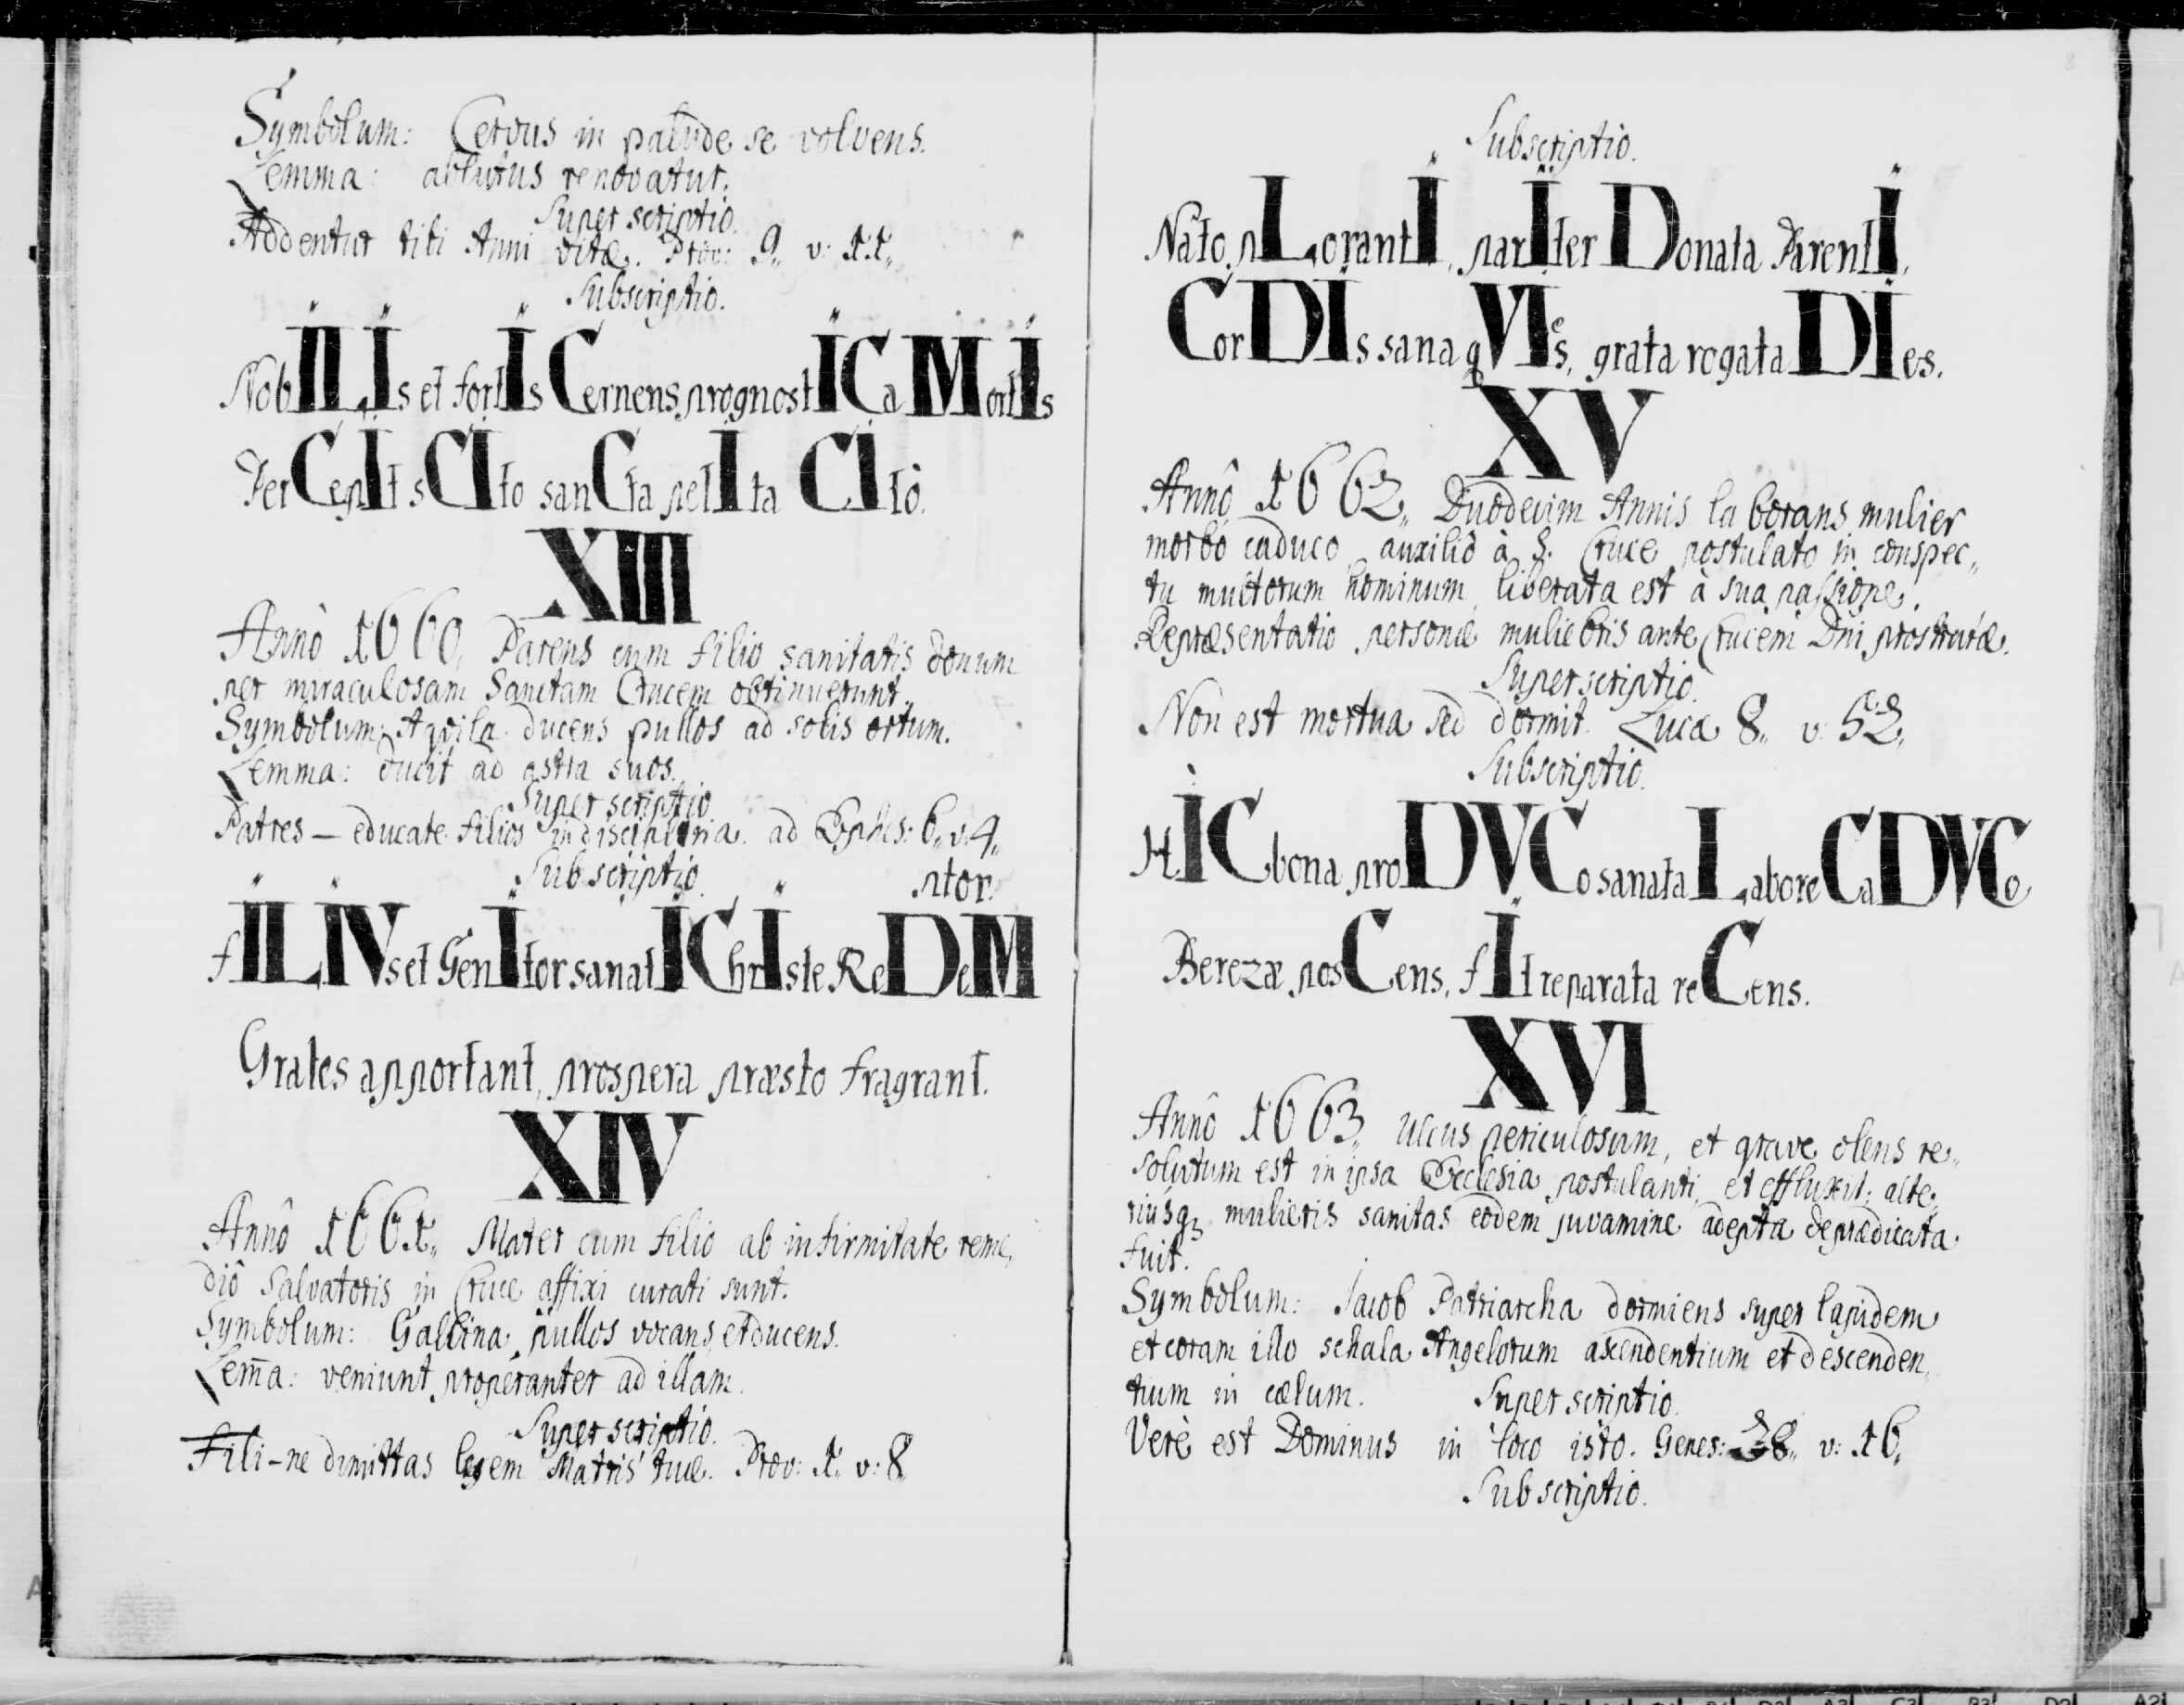 Symbolum: Cervus in palude se volvens.
Lemma: ablutus renovatur.
Super scriptio.
Addentur tibi Anni vitæ. Prov: 9,, v: 11,,
Subscriptio.
NobILIs et fortIs Cernens prognostICa MortIs
PerCepIt sCIto sanCta petIta CIto.
XIII
Annô 1660,, Parens cum filio sanitatis donum
per miraculosam Sanctam Crucem obtinuerunt.
Symbolum: Aqvila ducens pullos ad solis ortum.
Lemma: ducit ad astra suos.
Super scriptio
Patres — educate filios in disciplina. ad Ephes: 6,, v: 4,,
Subscriptio.
ptor.
fILIVs et GenItor sanatI ChrIste ReDeM
Grates apportant, prospera præsto fragrant.
XIV
Annô 1661,, Mater cum filio ab infirmitate reme,,
diô Salvatoris in Cruce affixi curati sunt.
Symbolum: Gallina, pullos vocans, et ducens.
Lem̄a: veniunt properanter ad illam.
Super scriptio.
Fili - ne dimittas legem Matris tuæ. Prov: 1,, v: 8,,
Subscriptio.
Nato pLorantI, parIter Donata ParentI,
CorDIs sana qVIes, grata rogata DIes.
XV
Annô 1662,, Duodecim Annis laborans mulier
morbo caduco, auxiliô à S. Cruce postulato in conspec,,
tu multorum hominum liberata est à sua passione.
Repræsentatio personæ muliebris ante Crucem Dni prostratæ.
Super scriptio.
Non est mortua sed dormit. Lucæ 8,, v: 52,,
Subscriptio.
HIC bona proDVCo sanata Labore CaDVCo
Berezæ posCens, fIt reparata reCens.
XVI
Annô 1663,, Ulcus periculosum, et grave olens re,,
solutum est in ipsa Ecclesia postulanti, et effluxit: alte,,
riúsq, mulieris sanitas eodem juvamine adepta deprædicata
fuit.
Symbolum: Jacob Patriarcha dormiens super lapidem
et coram illo schala Angelorum ascendentium et descenden,,
tium in cælum.
Super scriptio.
Verè est Dominus in loco isto. Genes: v: 16,,
Subscriptio.